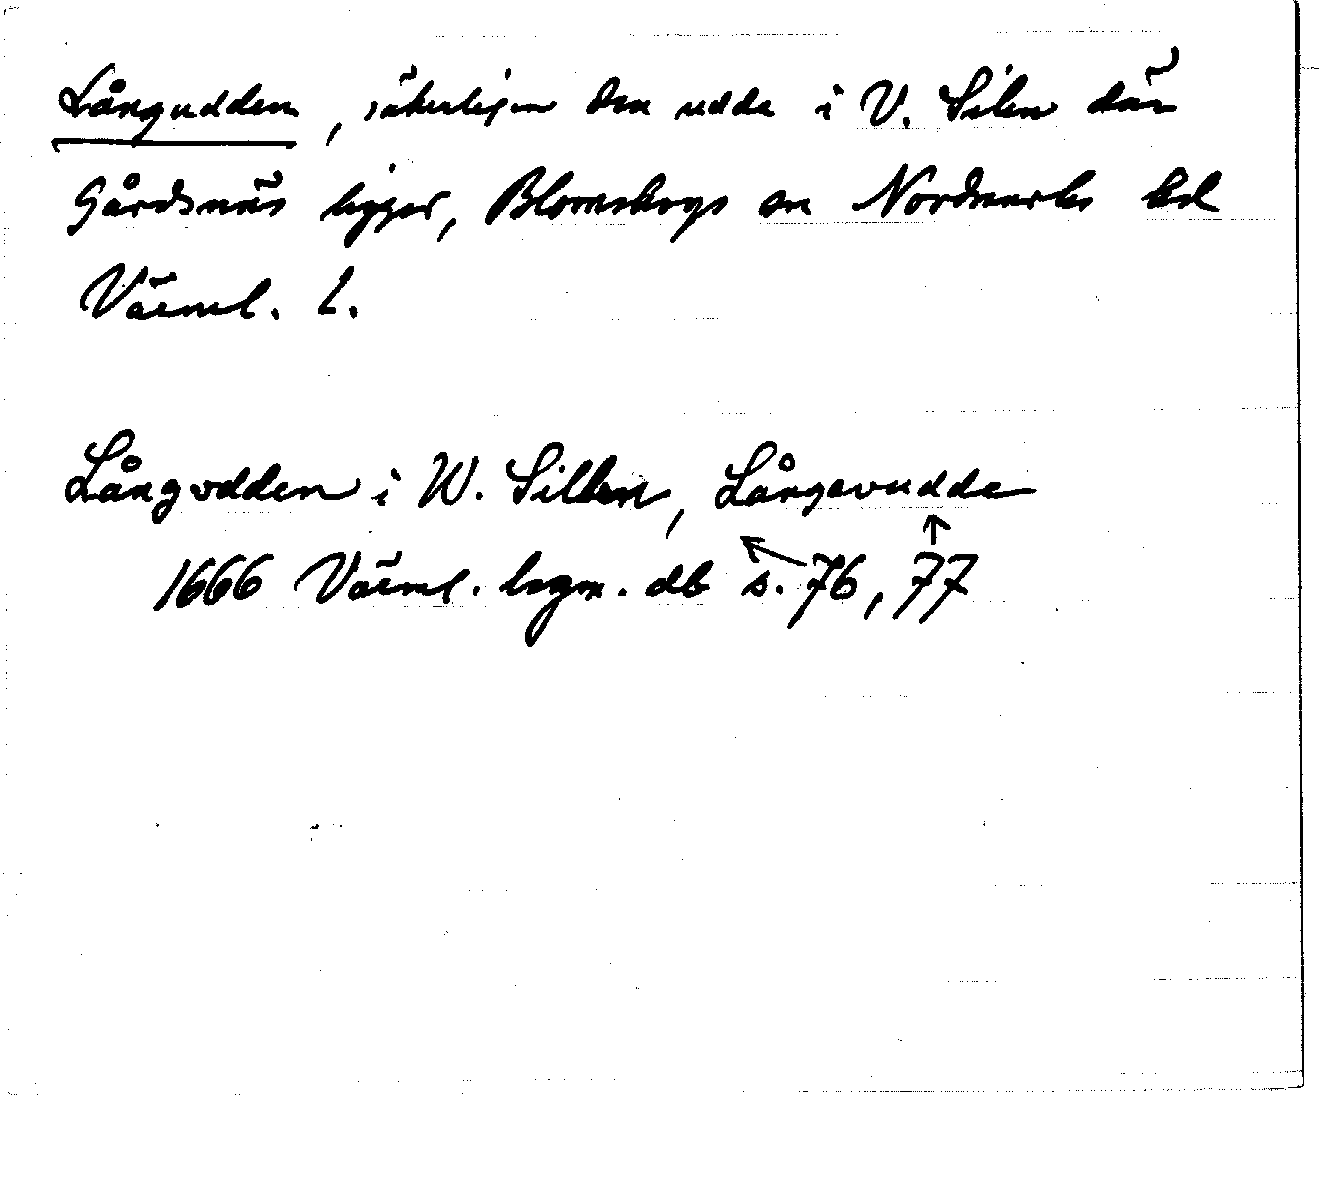 Långudden, säkerligen den udde i V. Silen där
Gårdsnäs ligger, Blomskogs sn Nordmarks hd
Värml. l.
Långvdden i W. Sillen, Långavudde
1666 Värml. lagm. db s. 76, 77